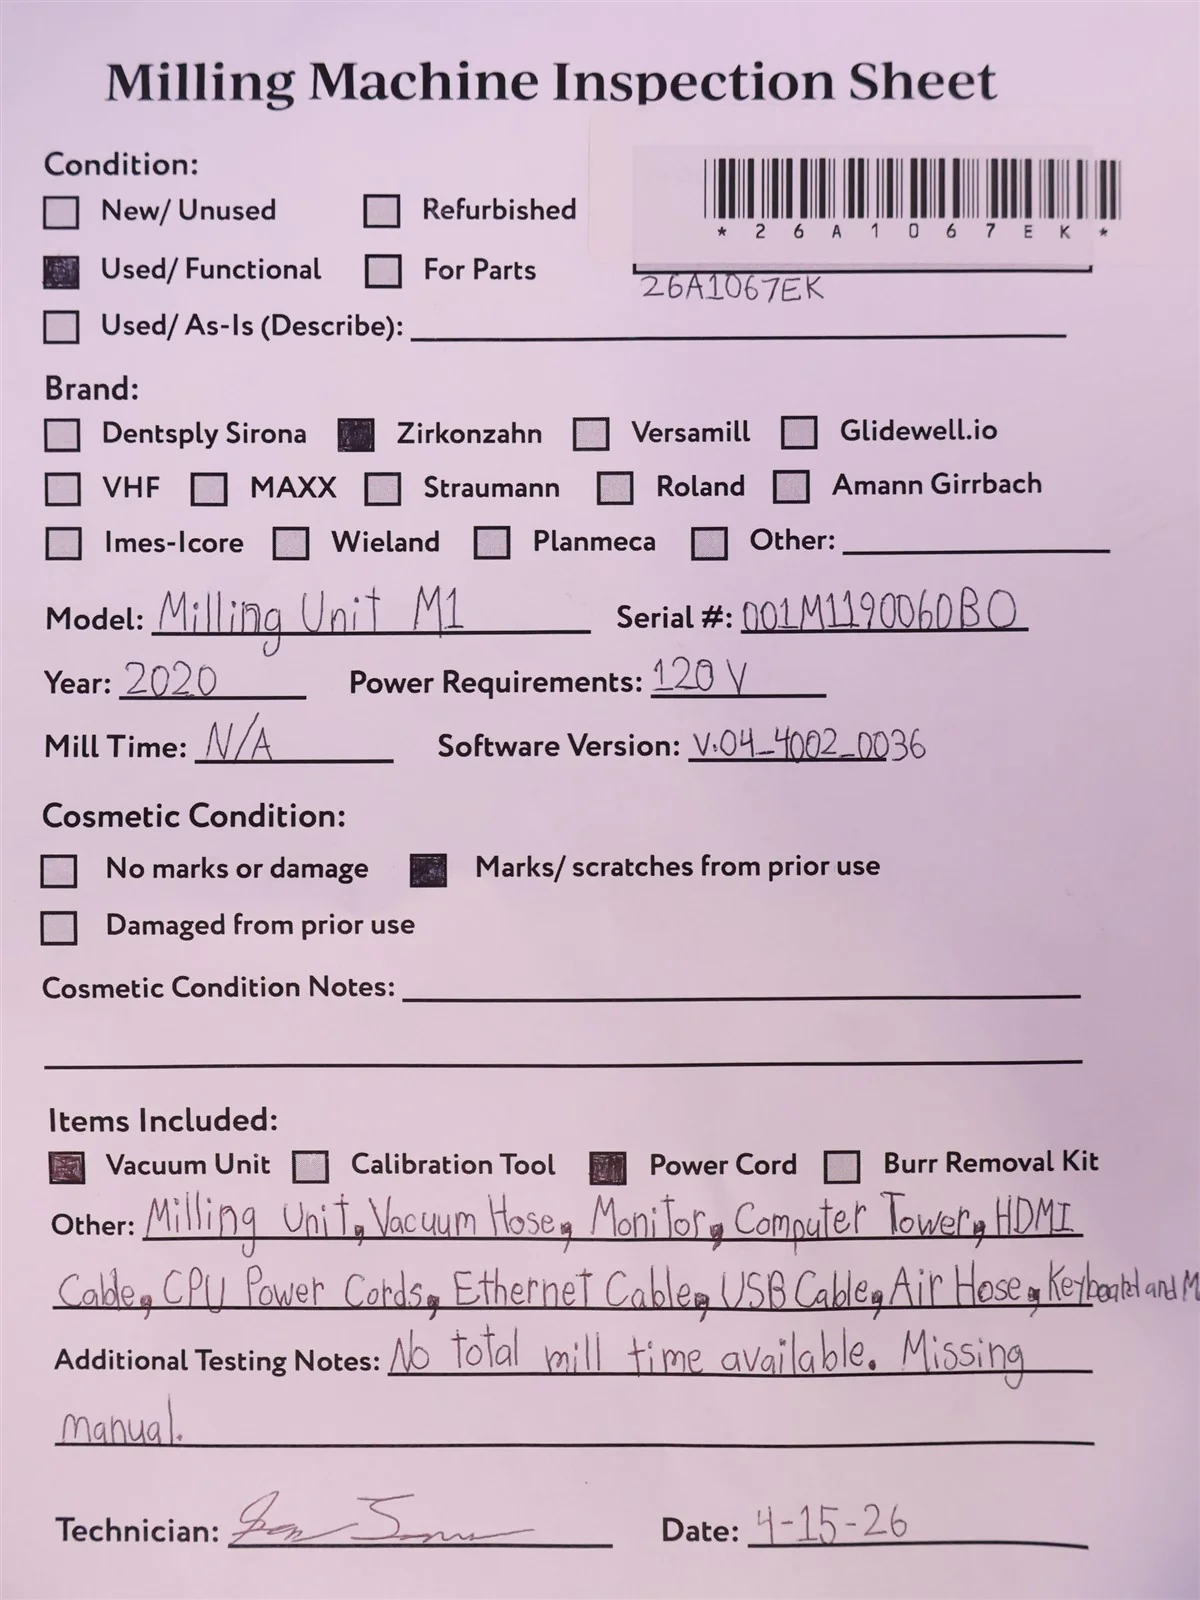 Milling Machine Inspection Sheet
Condition:
New/ Unused Refurbished
* 2 6 A 1 0 6 7 E K *
Used/ Functional For Parts
26A1067EK
Used/ As-Is (Describe):
Brand:
Dentsply Sirona Zirkonzahn Versamill Glidewell.io
VHF MAXX Straumann Roland Amann Girrbach
Imes-Icore Wieland Planmeca Other:
Model: Milling Unit M1 Serial #: 001M1190060BO
Year: 2020 Power Requirements: 120 V
Mill Time: N/A Software Version: V.04_4002_0036
Cosmetic Condition:
No marks or damage Marks/ scratches from prior use
Damaged from prior use
Cosmetic Condition Notes:
Items Included:
Vacuum Unit Calibration Tool Power Cord Burr Removal Kit
Other: Milling Unit, Vacuum Hose, Monitor, Computer Tower, HDMI
Cable, CPU Power Cords, Ethernet Cable, USB Cable, Air Hose, Keyboard and M
Additional Testing Notes: No total mill time available. Missing
manual.
Technician: Date: 4-15-26